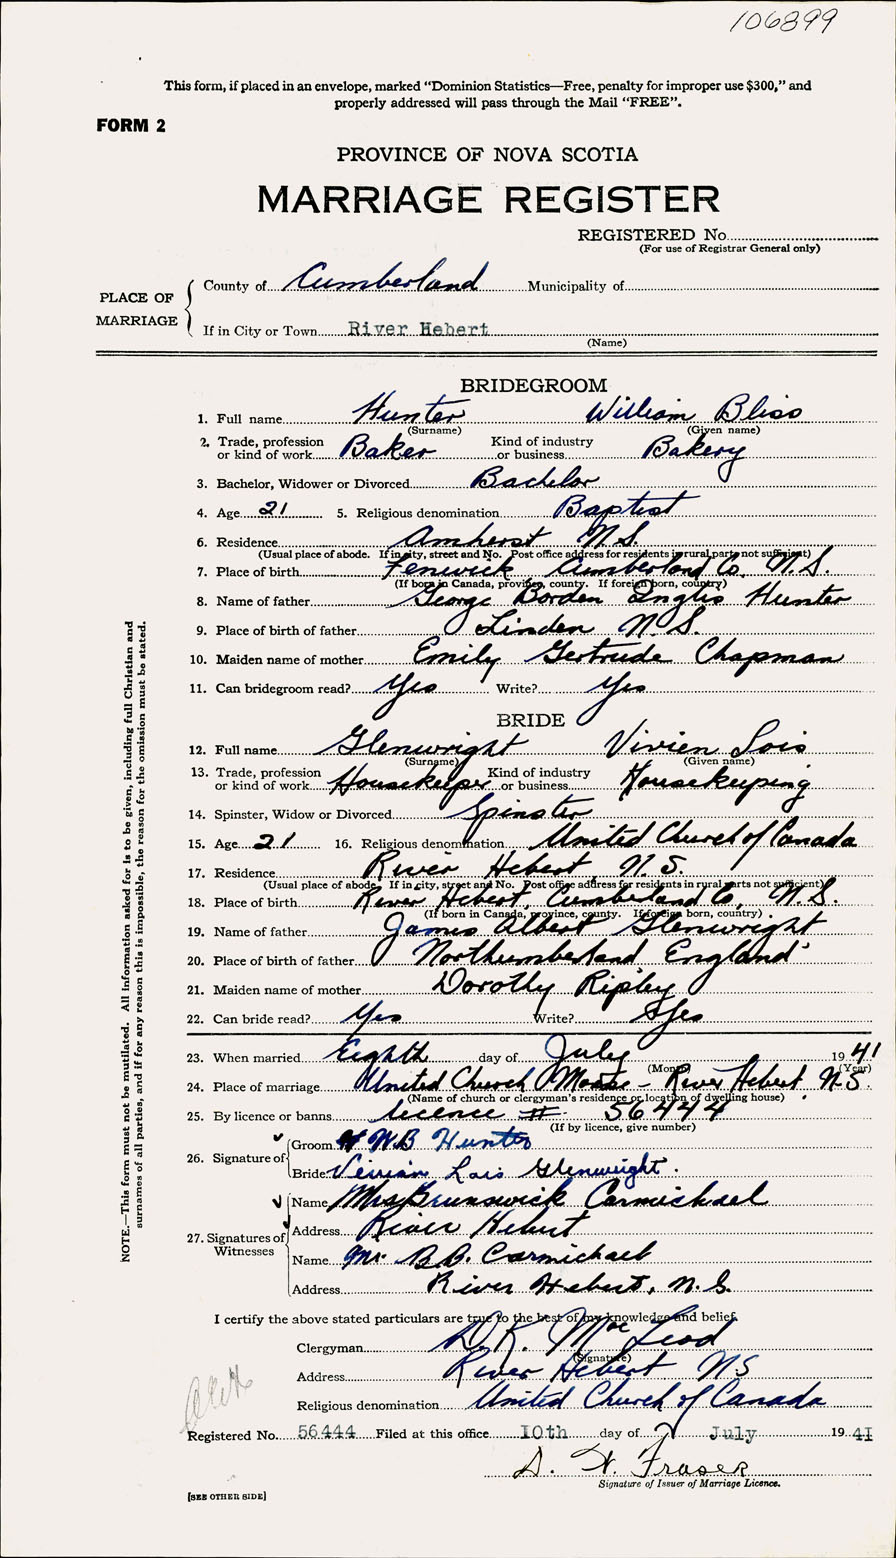 106899
This form, if placed in an envelope, marked “Dominion Statistics—Free, penalty for improper use $300,” and
properly addressed will pass through the Mail “FREE”.
FORM 2
PROVINCE OF NOVA SCOTIA
MARRIAGE REGISTER
REGISTERED No.
(For use of Registrar General only)
PLACE OF MARRIAGE
County of Cumberland Municipality of
If in City or Town River Hebert
(Name)
BRIDEGROOM
1. Full name Hunter William Bliss
(Surname) (Given name)
2. Trade, profession or kind of work Baker Kind of industry or business Bakery
3. Bachelor, Widower or Divorced Bachelor
4. Age 21 5. Religious denomination Baptist
6. Residence Amherst N.S.
(Usual place of abode. If in city, street and No. Post office address for residents in rural parts not sufficient)
7. Place of birth Fenwick Cumberland Co. N.S.
(If born in Canada, province, county. If foreign born, country)
8. Name of father George Borden Inglis Hunter
9. Place of birth of father Linden N.S.
10. Maiden name of mother Emily Gertrude Chapman
11. Can bridegroom read? Yes Write? Yes
BRIDE
12. Full name Glenwright Vivien Lois
(Surname) (Given name)
13. Trade, profession or kind of work Housekeeper Kind of industry or business Housekeeping
14. Spinster, Widow or Divorced Spinster
15. Age 21 16. Religious denomination United Church of Canada
17. Residence River Hebert N.S.
(Usual place of abode. If in city, street and No. Post office address for residents in rural parts not sufficient)
18. Place of birth River Hebert, Cumberland Co, N.S.
(If born in Canada, province, county. If foreign born, country)
19. Name of father James Albert Glenwright
20. Place of birth of father Northumberland England
21. Maiden name of mother Dorothy Ripley
22. Can bride read? Yes Write? Yes
23. When married Eighth day of July 1941
(Month) (Year)
24. Place of marriage United Church Manse - River Hebert N.S.
(Name of church or clergyman's residence or location of dwelling house)
25. By licence or banns licence # 56444
(If by licence, give number)
26. Signature of
Groom W B Hunter
Bride Vivian Lois Glenwright.
27. Signatures of Witnesses
Name Mrs Brunswick Carmichael
Address River Hebert
Name Mr. B.B. Carmichael
Address River Hebert, N.S.
I certify the above stated particulars are true to the best of my knowledge and belief.
Clergyman D.K. MacLeod
(Signature)
Address River Hebert NS
Religious denomination United Church of Canada
Registered No. 56444 Filed at this office 10th day of July 1941
D. W. Fraser
Signature of Issuer of Marriage Licence.
[SEE OTHER SIDE]
NOTE.—This form must not be mutilated. All information asked for is to be given, including full Christian and
surnames of all parties, and if for any reason this is impossible, the reason for the omission must be stated.